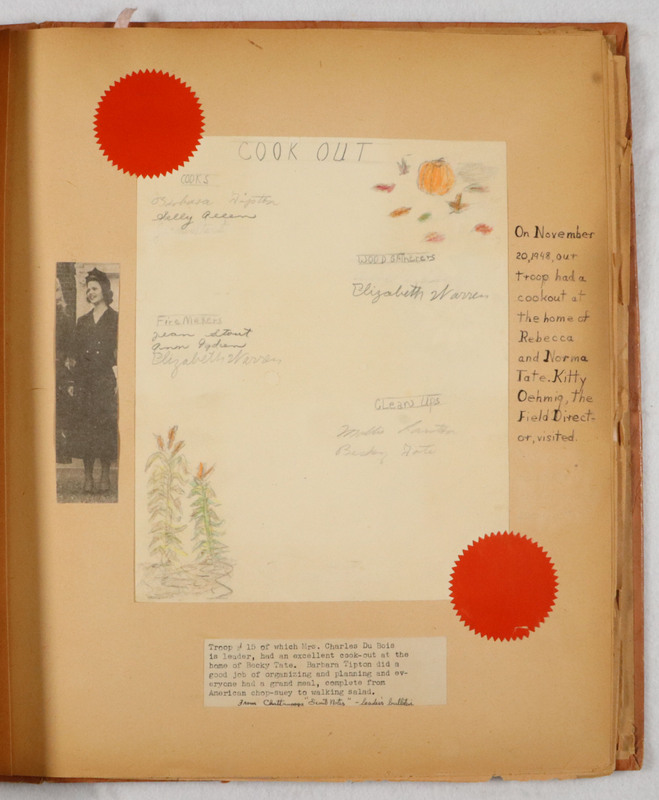 COOK OUT
COOKS
Barbara Tipton
Selly Allen
WOOD GAtHerers
Elizabeth Warren
Fire Makers
Jean Stout
Ann
Elizabeth Warren
CLean Up
Becky Tate
On November
20, 1948, our
troop had a
cookout at
the home of
Rebecca
and Norma
Tate. Kitty
Oehmig, the
Field Direct-
or, visited.
Troop # 15 of which Mrs. Charles Du Bois
is leader, had an excellent cook-out at the
home of Becky Tate.  Barbara Tipton did a
good job of organizing and planning and ev-
eryone had a grand meal, complete from
American chop-suey to walking salad.
from Chattanooga "Scout Notes" - leader's bulletin